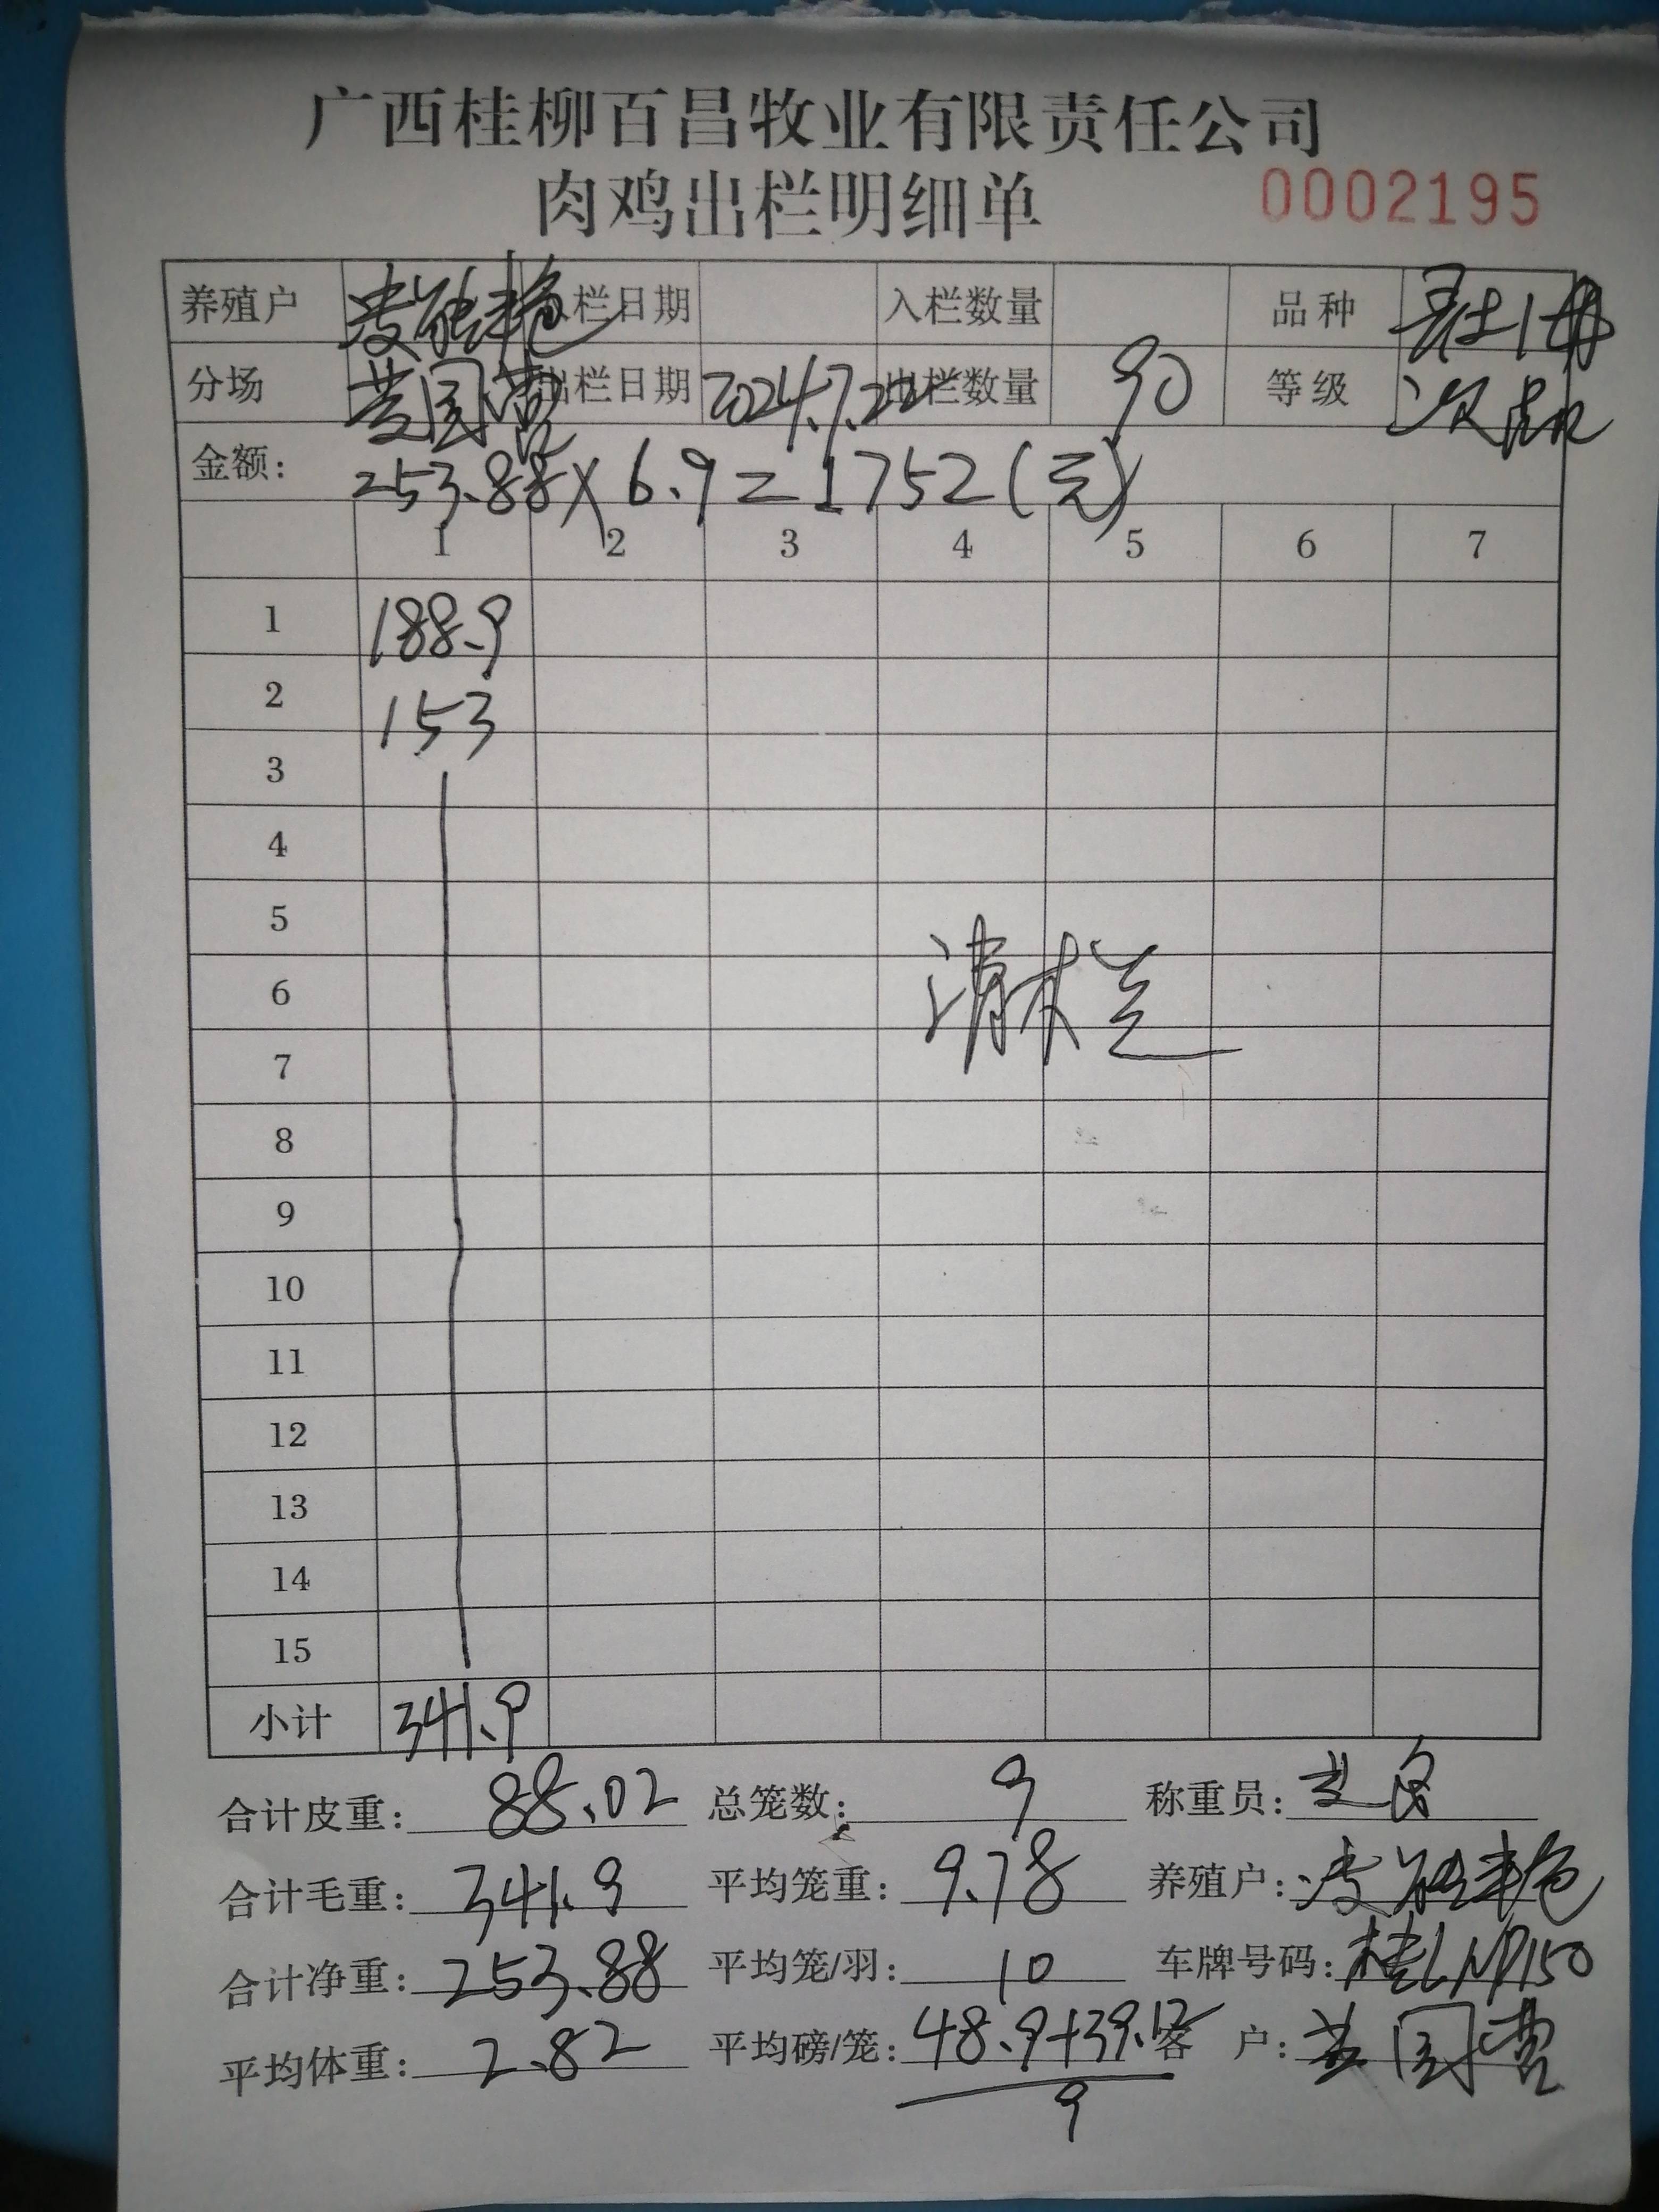 广西桂柳百昌牧业有限责任公司
肉鸡出栏明细单 0002195
养殖户 入栏日期 入栏数量 品种
分场 出栏日期 2024.7.22 出栏数量 90 等级 次
金额: 253.88×6.9=1752(元)
1 2 3 4 5 6 7
1 188.9
2 153
3
4
5
6 清栏
7
8
9
10
11
12
13
14
15
小计 341.9
合计皮重: 88.02 总笼数: 9 称重员:
合计毛重: 341.9 平均笼重: 9.78 养殖户:
合计净重: 253.88 平均笼/羽: 10 车牌号码:
平均体重: 2.82 平均磅/笼: 48.9+39.12 客 户:
9